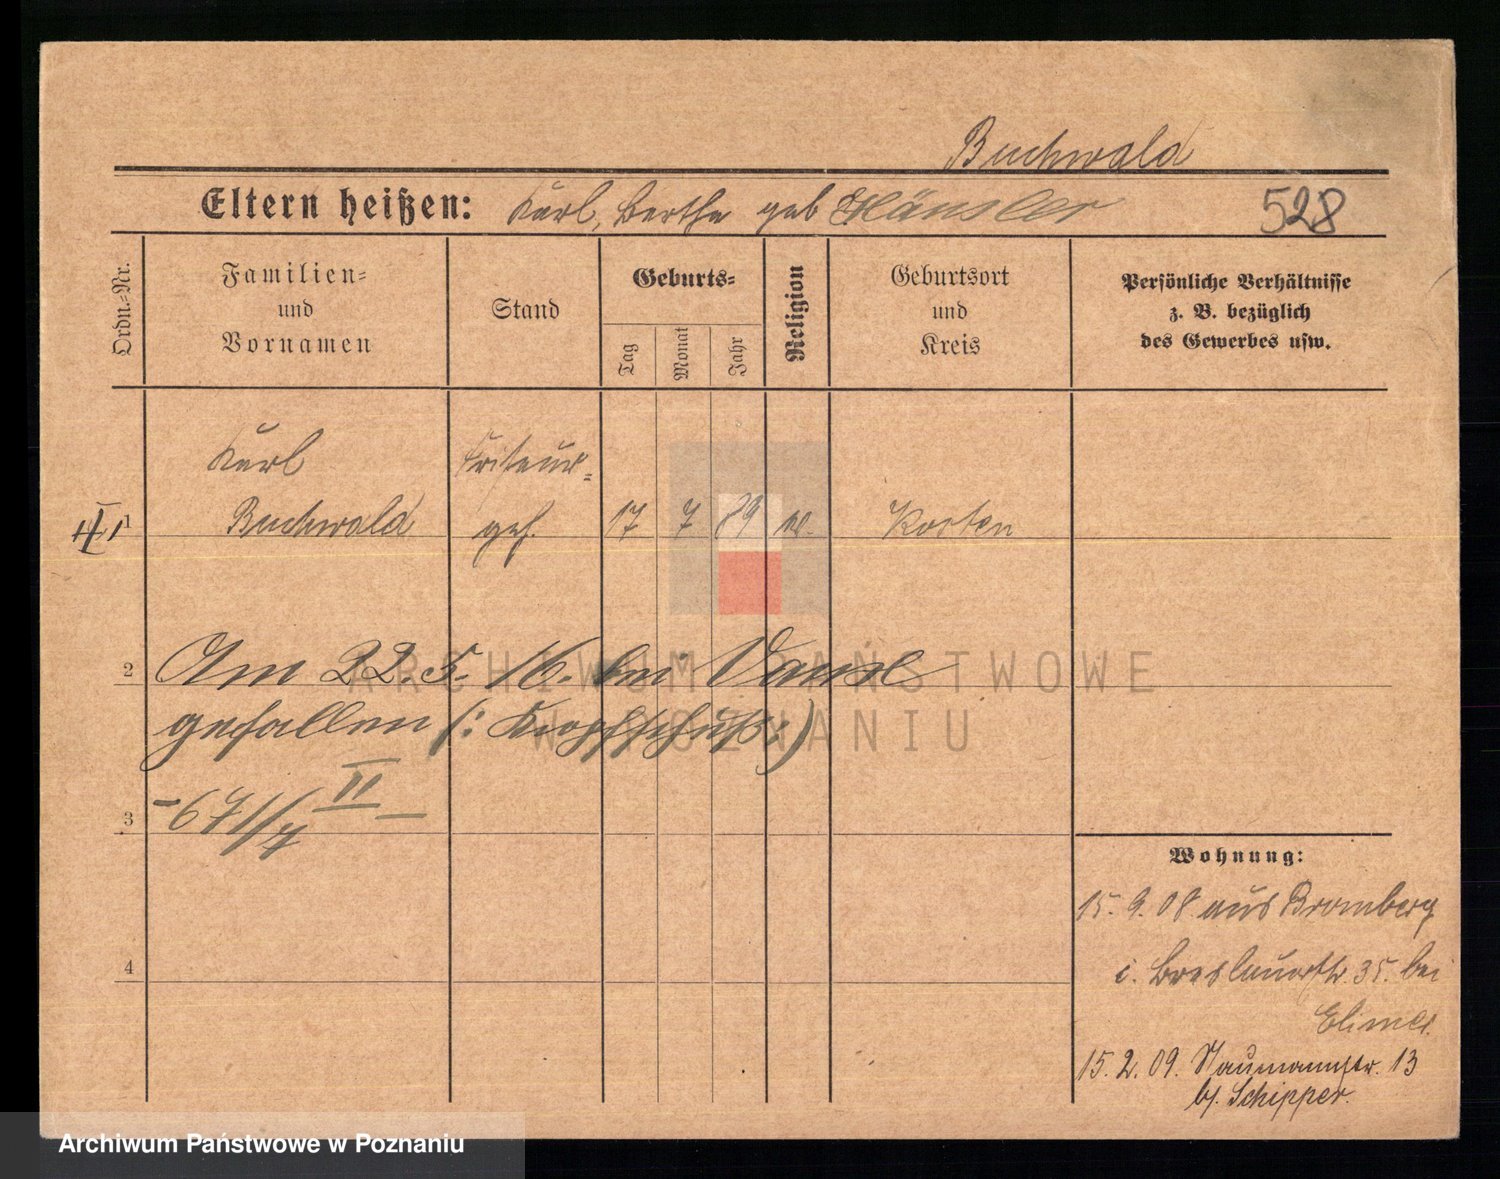 Buchwald
Eltern heißen: Karl, Berthe geb Hänsler
528
Ordn.-Nr.
Familien-
und
Vornamen
Stand
Geburts-
Tag
Monat
Jahr
Religion
Geburtsort
und
Kreis
Persönliche Verhältnisse
z. B. bezüglich
des Gewerbes usw.
Karl Friseur-
1 Buchwald geh. 17 7 89 Kosten
2 Am 22. 5. 16. bei Vaux
gefallen (: Kopfschuß :)
3 -671/7 II -
4
Wohnung:
15. 9. 08 aus Bromberg
i. Breslauerstr. 35. bei
15. 2. 09. Naumannstr. 13
b/. Schipper.
ARCHIWUM PAŃSTWOWE
W POZNANIU
Archiwum Państwowe w Poznaniu